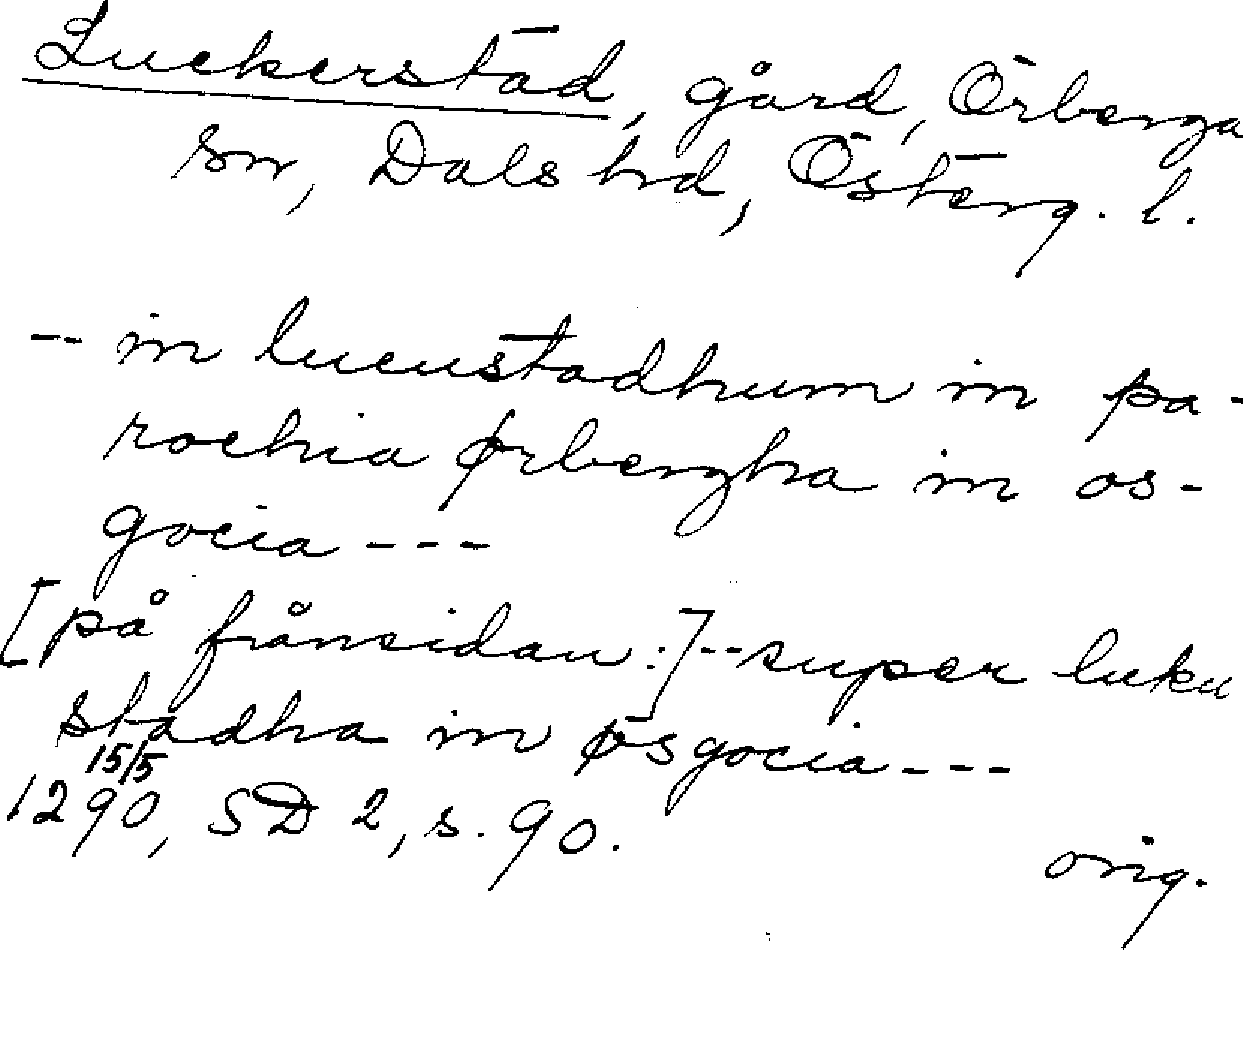 Luckerstad, gård, Örberga
sn, Dals hd, Österg. l.
-- in lucustadhum in pa-
rochia ørbergha in os-
gocia ---
[på frånsidan:] -- super luku
stadha in øsgocia ---
15/5
1290, SD 2, s. 90.
orig.